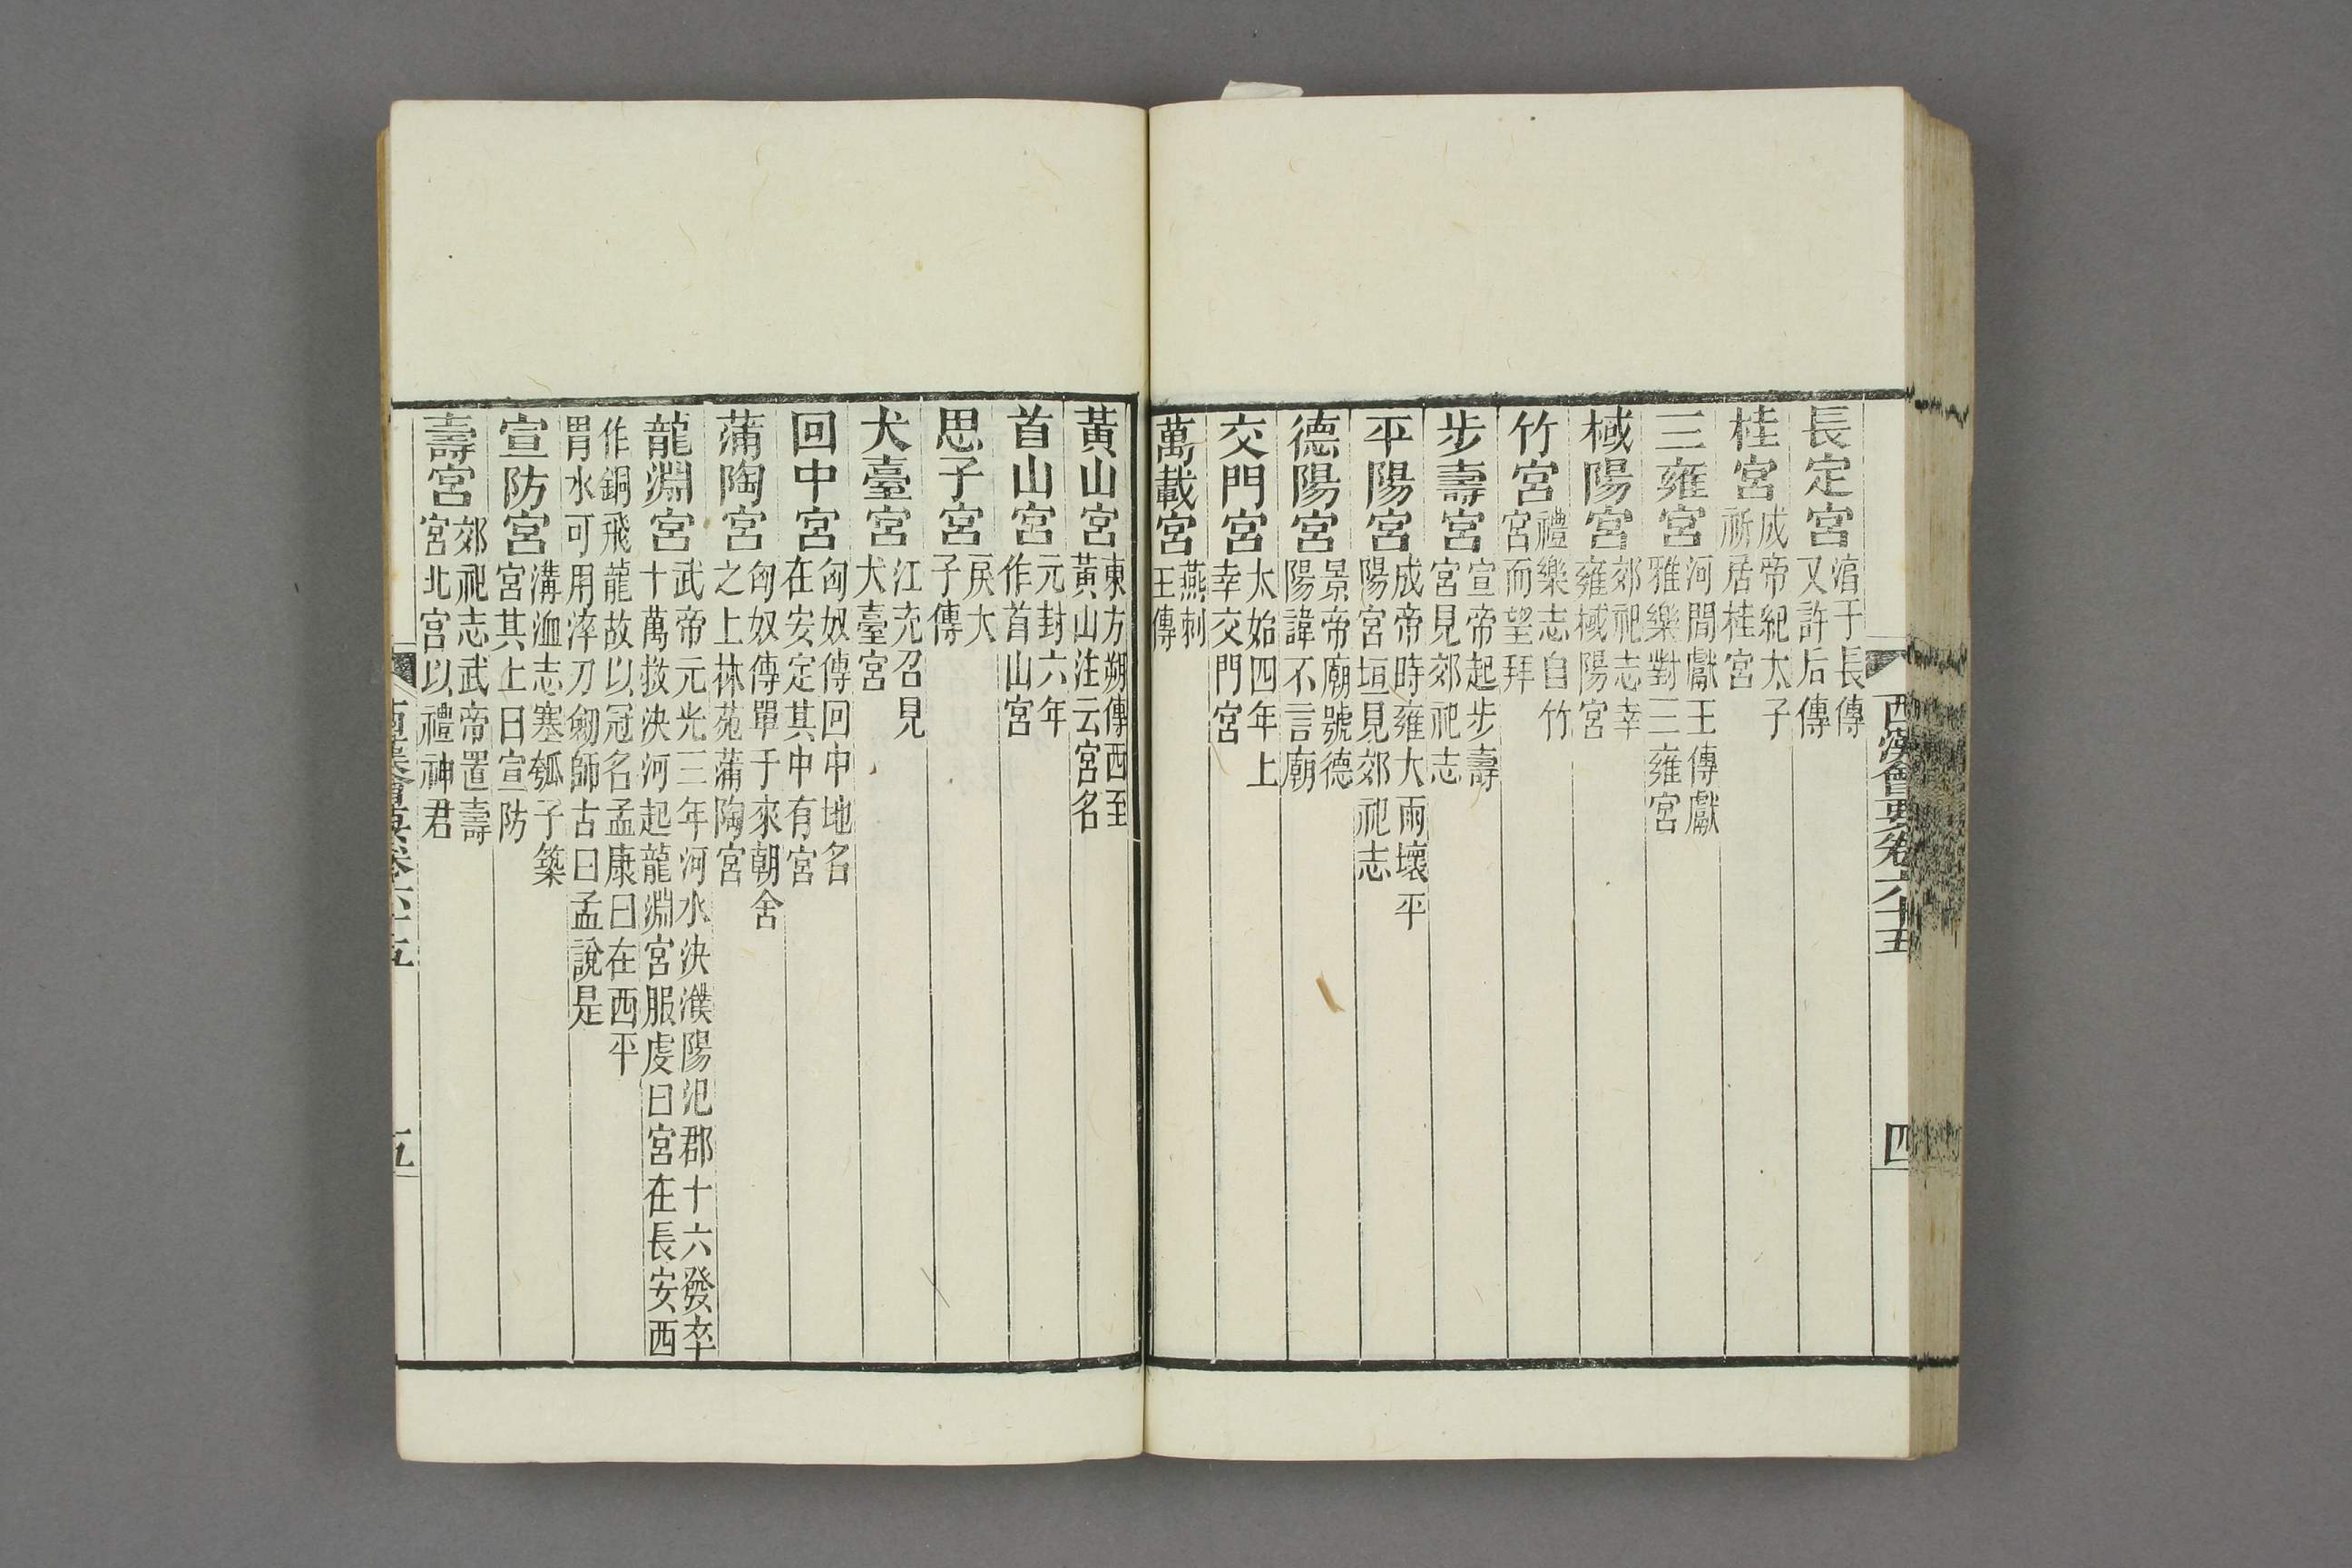 西漢會要卷六十五
四
長定宮 淯于長傳又許后傳
桂宮 成帝紀太子祈居桂宮
三雍宮 河閒獻王傳獻雅樂對三雍宮
棫陽宮 郊祀志幸雍棫陽宮
竹宮 禮樂志自竹宮而望拜
步壽宮 宣帝起步壽宮見郊祀志
平陽宮 成帝時雍大雨壞平陽宮垣見郊祀志
德陽宮 景帝廟號德陽諱不言廟
交門宮 太始四年上幸交門宮
萬載宮 燕刺王傳
黃山宮 東方朔傳西至黃山注云宮名
首山宮 元封六年作首山宮
思子宮 戾太子傳
犬臺宮 江充召見犬臺宮
回中宮 匈奴傳回中地名在安定其中有宮
蒲陶宮 匈奴傳單于來朝舍之上林苑蒲陶宮
龍淵宮 武帝元光三年河水決濮陽氾郡十六發卒十萬救決河起龍淵宮服虔曰宮在長安西
作銅飛龍故以冠名孟康曰在西平胃水可用淬刀劒師古曰孟說是
宣防宮 溝洫志塞瓠子築宮其上曰宣防
壽宮 郊祀志武帝置壽宮北宮以禮神君
西漢會要卷六十五
五